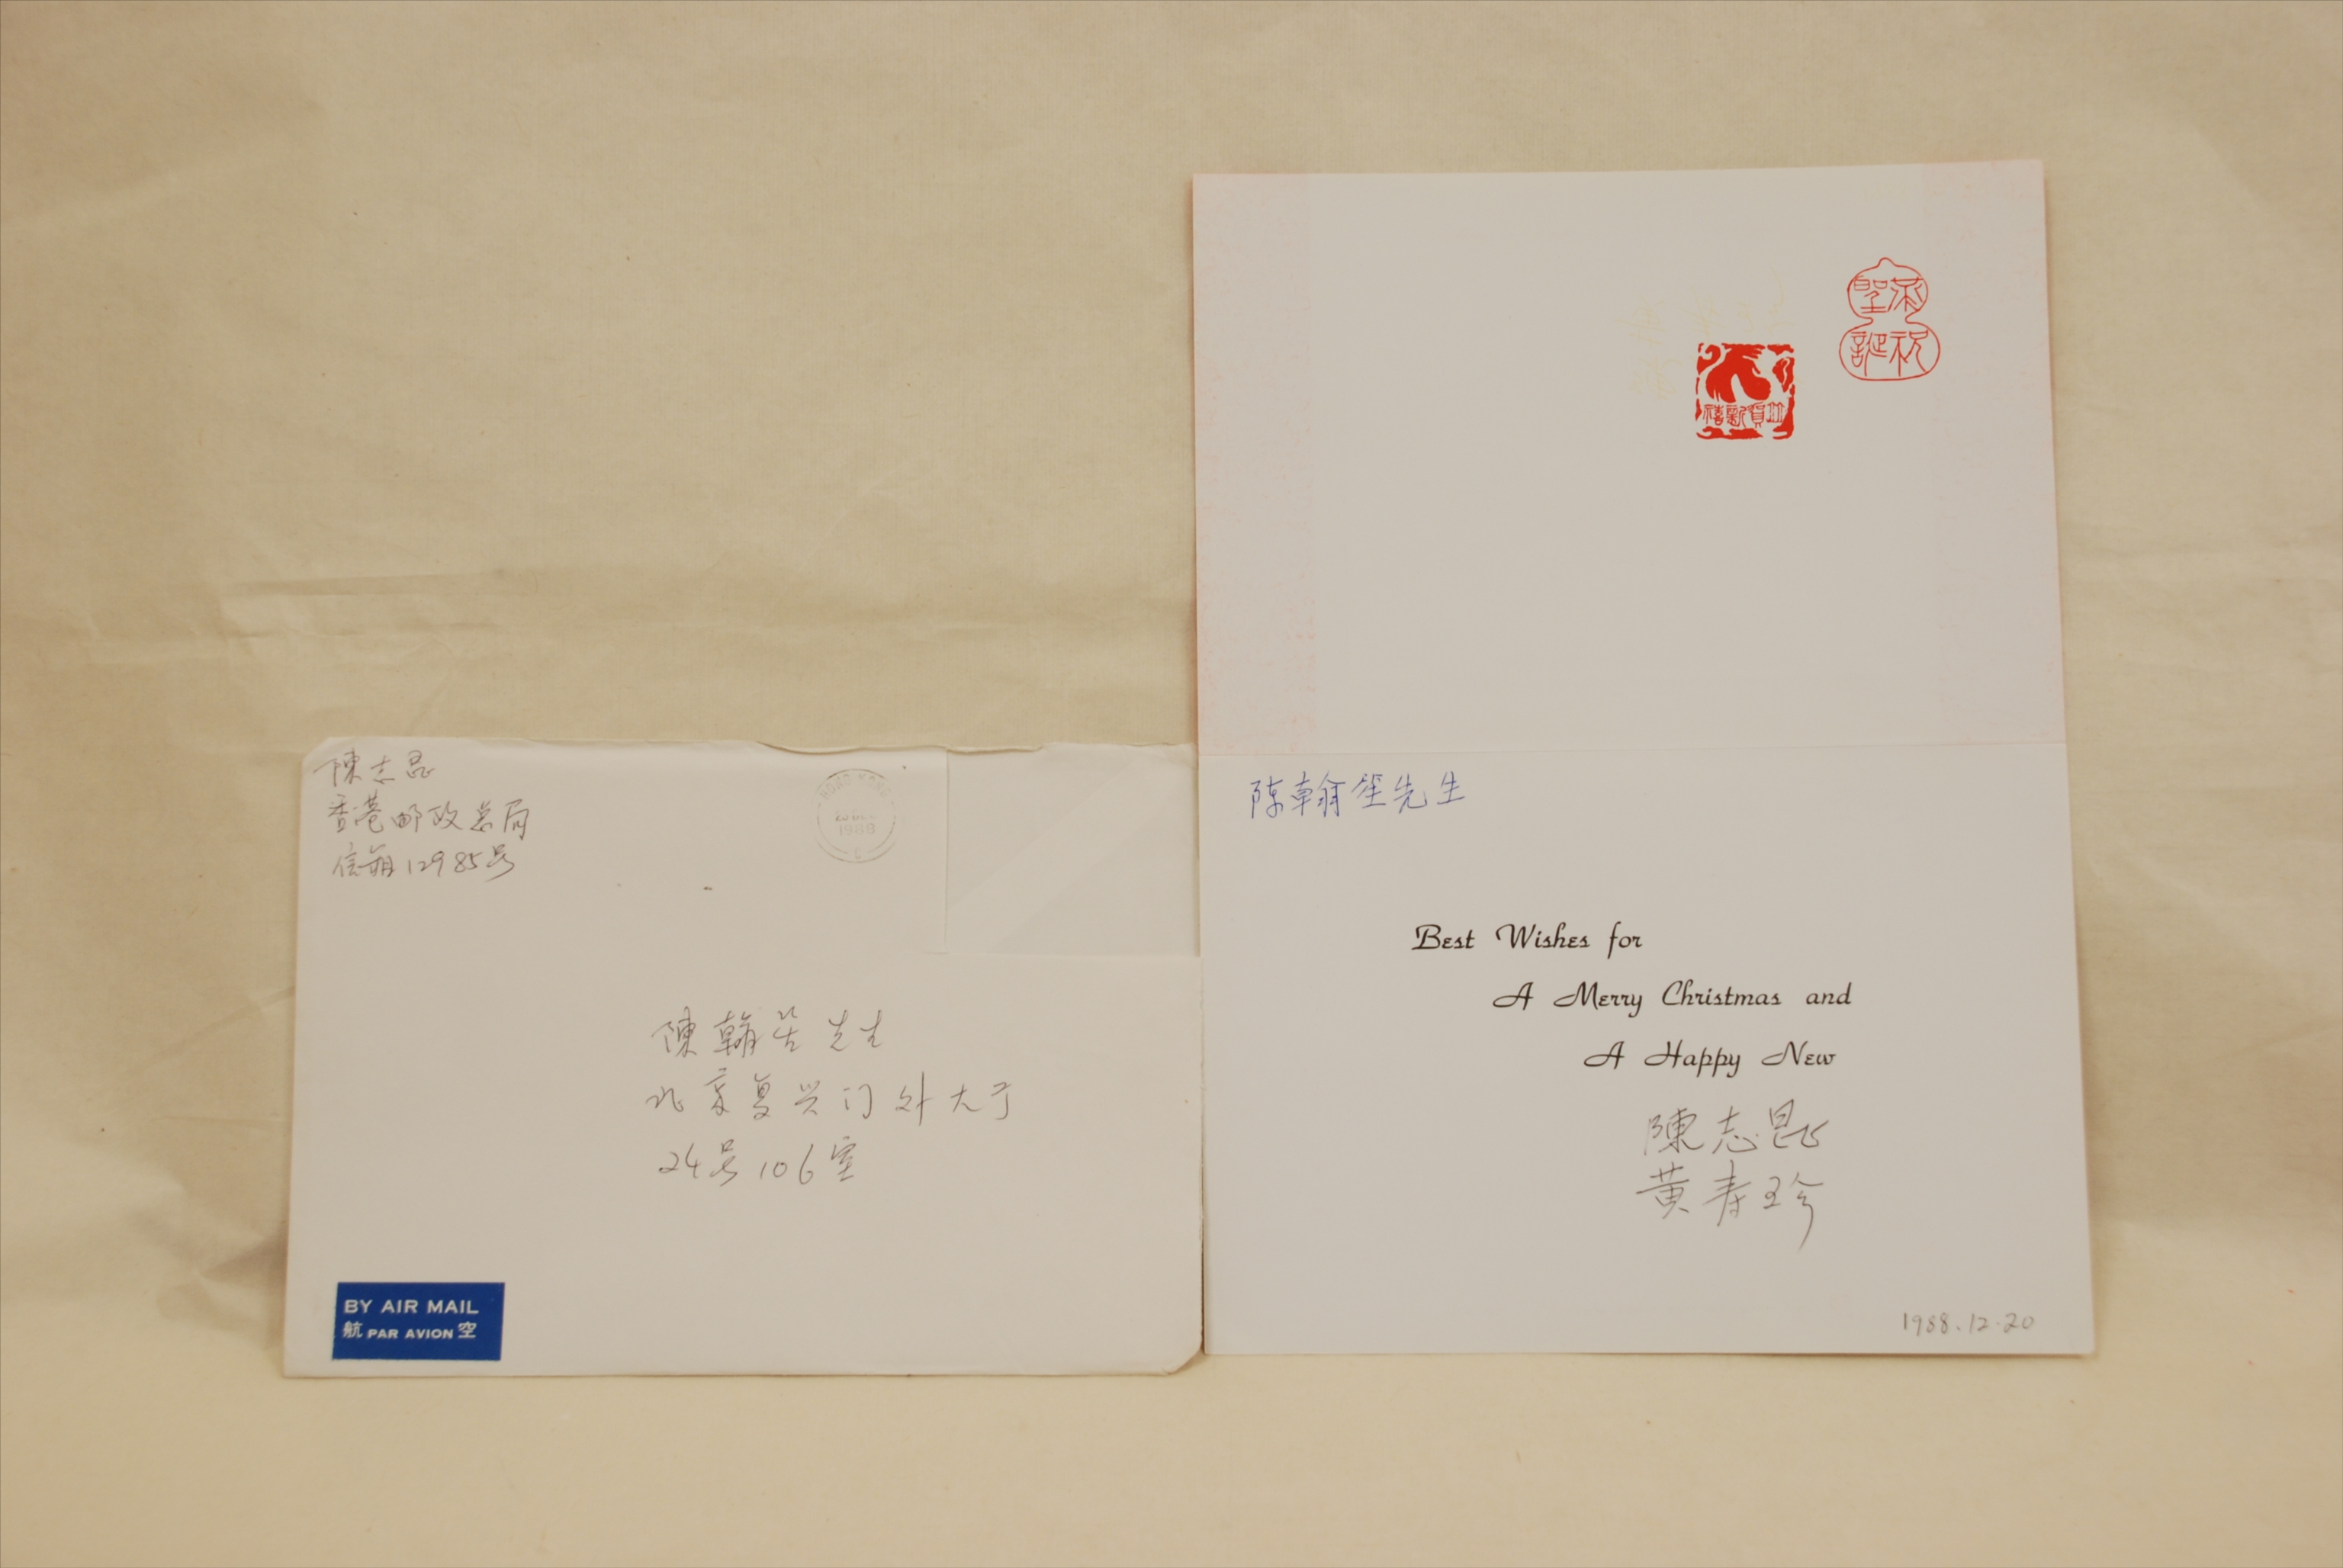 陳志昆
香港邮政总局
信箱12985号
HONG KONG
1988
陳翰笙先生
北京复兴门外大疒
24号106室
BY AIR MAIL
航 PAR AVION 空
恭祝
聖誕
並賀新禧
陈翰笙先生
Best Wishes for
A Merry Christmas and
A Happy New
陳志昆
黄寿珍
1988.12.20